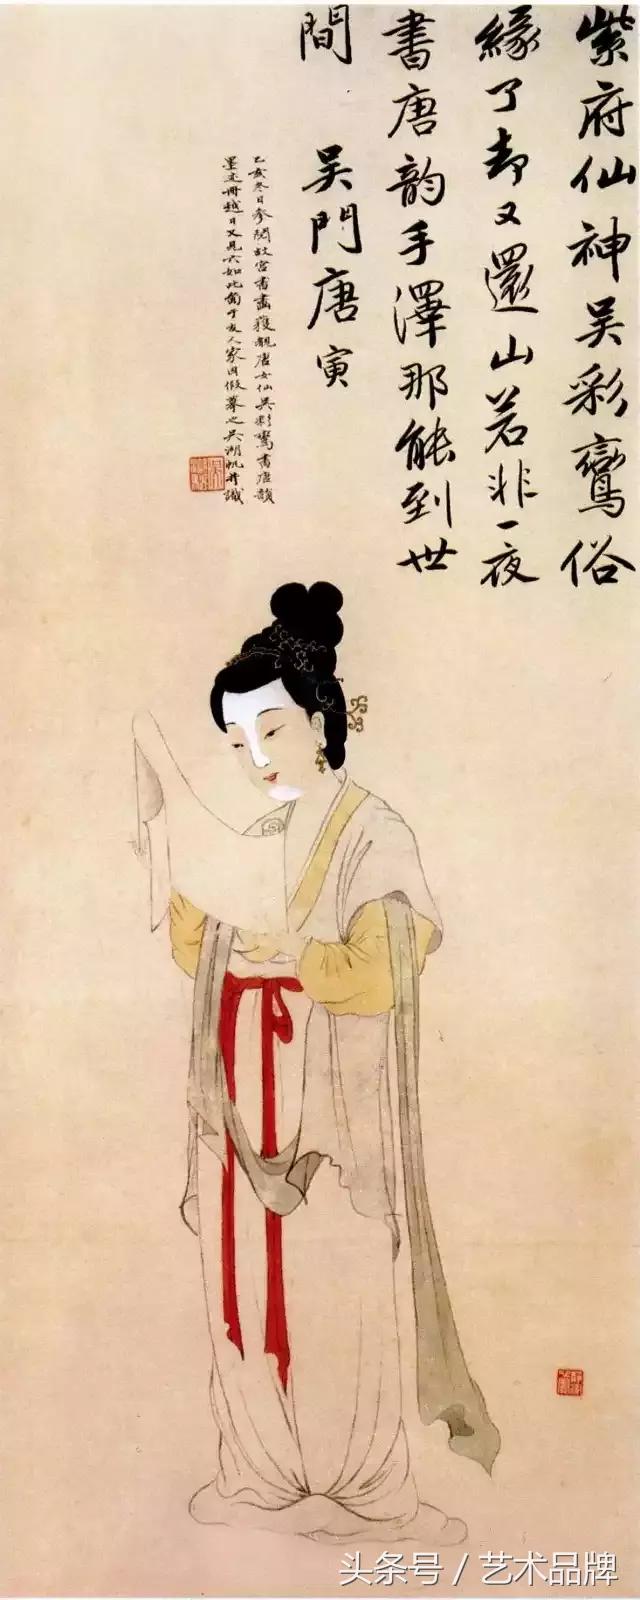 紫府仙神吴彩鸞俗
緣了却又還山若非一夜
書唐韵手澤那能到世
間 吴門唐寅
乙亥冬日參閱故宮書畫獲觀唐女仙吴彩鸞書唐韻
墨迹冊越日又見六如此圖于友人家因假摹之吴湖帆并識
头条号 / 艺术品牌